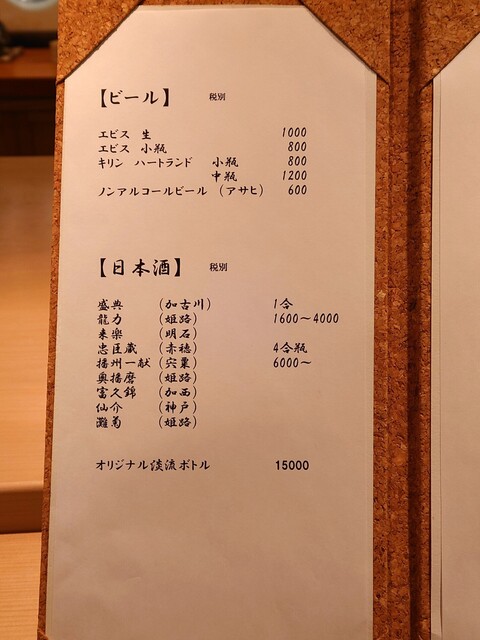 【ビール】 税別
エビス 生 1000
エビス 小瓶 800
キリン ハートランド 小瓶 800
中瓶 1200
ノンアルコールビール (アサヒ) 600
【日本酒】 税別
盛典 (加古川) 1合
龍力 (姫路) 1600〜4000
来楽 (明石)
忠臣蔵 (赤穂) 4合瓶
播州一献 (宍粟) 6000〜
奥播磨 (姫路)
富久錦 (加西)
仙介 (神戸)
灘菊 (姫路)
オリジナル淡流ボトル 15000